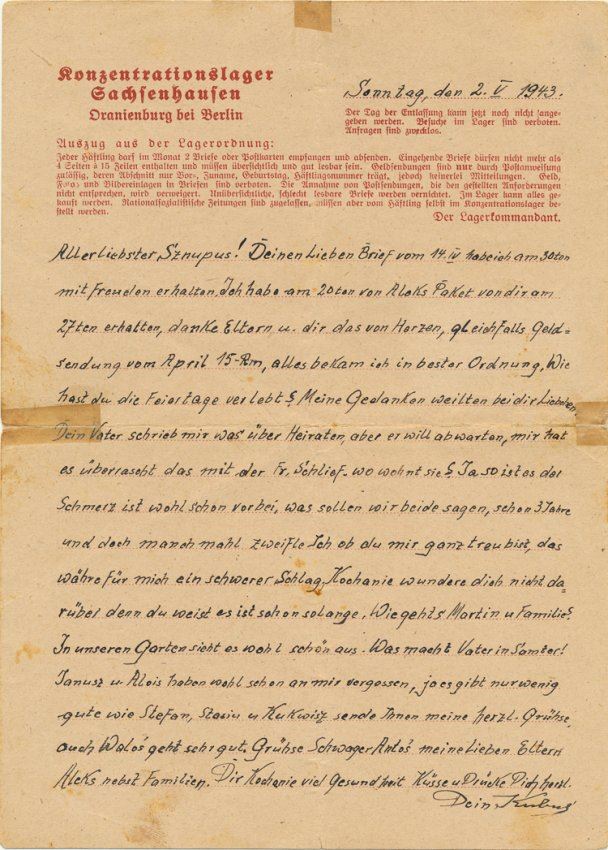 Konzentrationslager
Sachsenhausen
Oranienburg bei Berlin
Sonntag, den 2. V 1943.
Der Tag der Entlassung kann jetzt noch nicht ange-
geben werden. Besuche im Lager sind verboten.
Anfragen sind zwecklos.
Auszug aus der Lagerordnung:
Jeder Häftling darf im Monat 2 Briefe oder Postkarten empfangen und absenden. Eingehende Briefe dürfen nicht mehr als
4 Seiten à 15 Zeilen enthalten und müssen übersichtlich und gut lesbar sein. Geldsendungen sind nur durch Postanweisung
zulässig, deren Abschnitt nur Vor-, Zuname, Geburtstag, Häftlingsnummer trägt, jedoch keinerlei Mitteilungen. Geld,
Fotos und Bildereinlagen in Briefen sind verboten. Die Annahme von Postsendungen, die den gestellten Anforderungen
nicht entsprechen, wird verweigert. Unübersichtliche, schlecht lesbare Briefe werden vernichtet. Im Lager kann alles ge-
kauft werden. Nationalsozialistische Zeitungen sind zugelassen, müssen aber vom Häftling selbst im Konzentrationslager be-
stellt werden.
Der Lagerkommandant.
Allerliebster Sznupus! Deinen Lieben Brief vom 14. IV habe ich am 30ten
mit Freuden erhalten, Ich habe am 20ten von Aleks Paket von dir am
27ten erhalten, danke Eltern u. dir das von Herzen, gleichfalls Geld=
sendung vom April 15-Rm, alles bekam ich in bester Ordnung. Wie
hast du die Feiertage verlebt? Meine Gedanken weilten bei dir Liebchen.
Dein Vater schrieb mir was über Heiraten, aber er will abwarten, mir hat
es überrascht das mit der Fr. Schlief. wo wohnt sie? Ja so ist es der
Schmerz ist wohl schon vorbei, was sollen wir beide sagen, schon 3 Jahre
und doch manch mahl zweifle Ich ob du mir ganz treu bist, das
währe für mich ein schwerer Schlag, Kochanie wundere dich nicht da-
rüber denn du weist es ist schon solange. Wie gehts Martin u Familie?
In unseren Garten sieht es wohl schön aus. Was macht Vater in Samter!
Janusz u. Alois haben wohl schon an mir vergessen, ja es gibt nur wenig
gute wie Stefan, Stasiu u Kukwisz sende Ihnen meine herzl. Grühse,
auch Waloś geht sehr gut. Grühse Schwager Antoś meine Lieben Eltern
Aleks nebst Familien. Dir Kochanie viel Gesundheit Küsse u Drücke Dich herzl.
Dein Kubuś